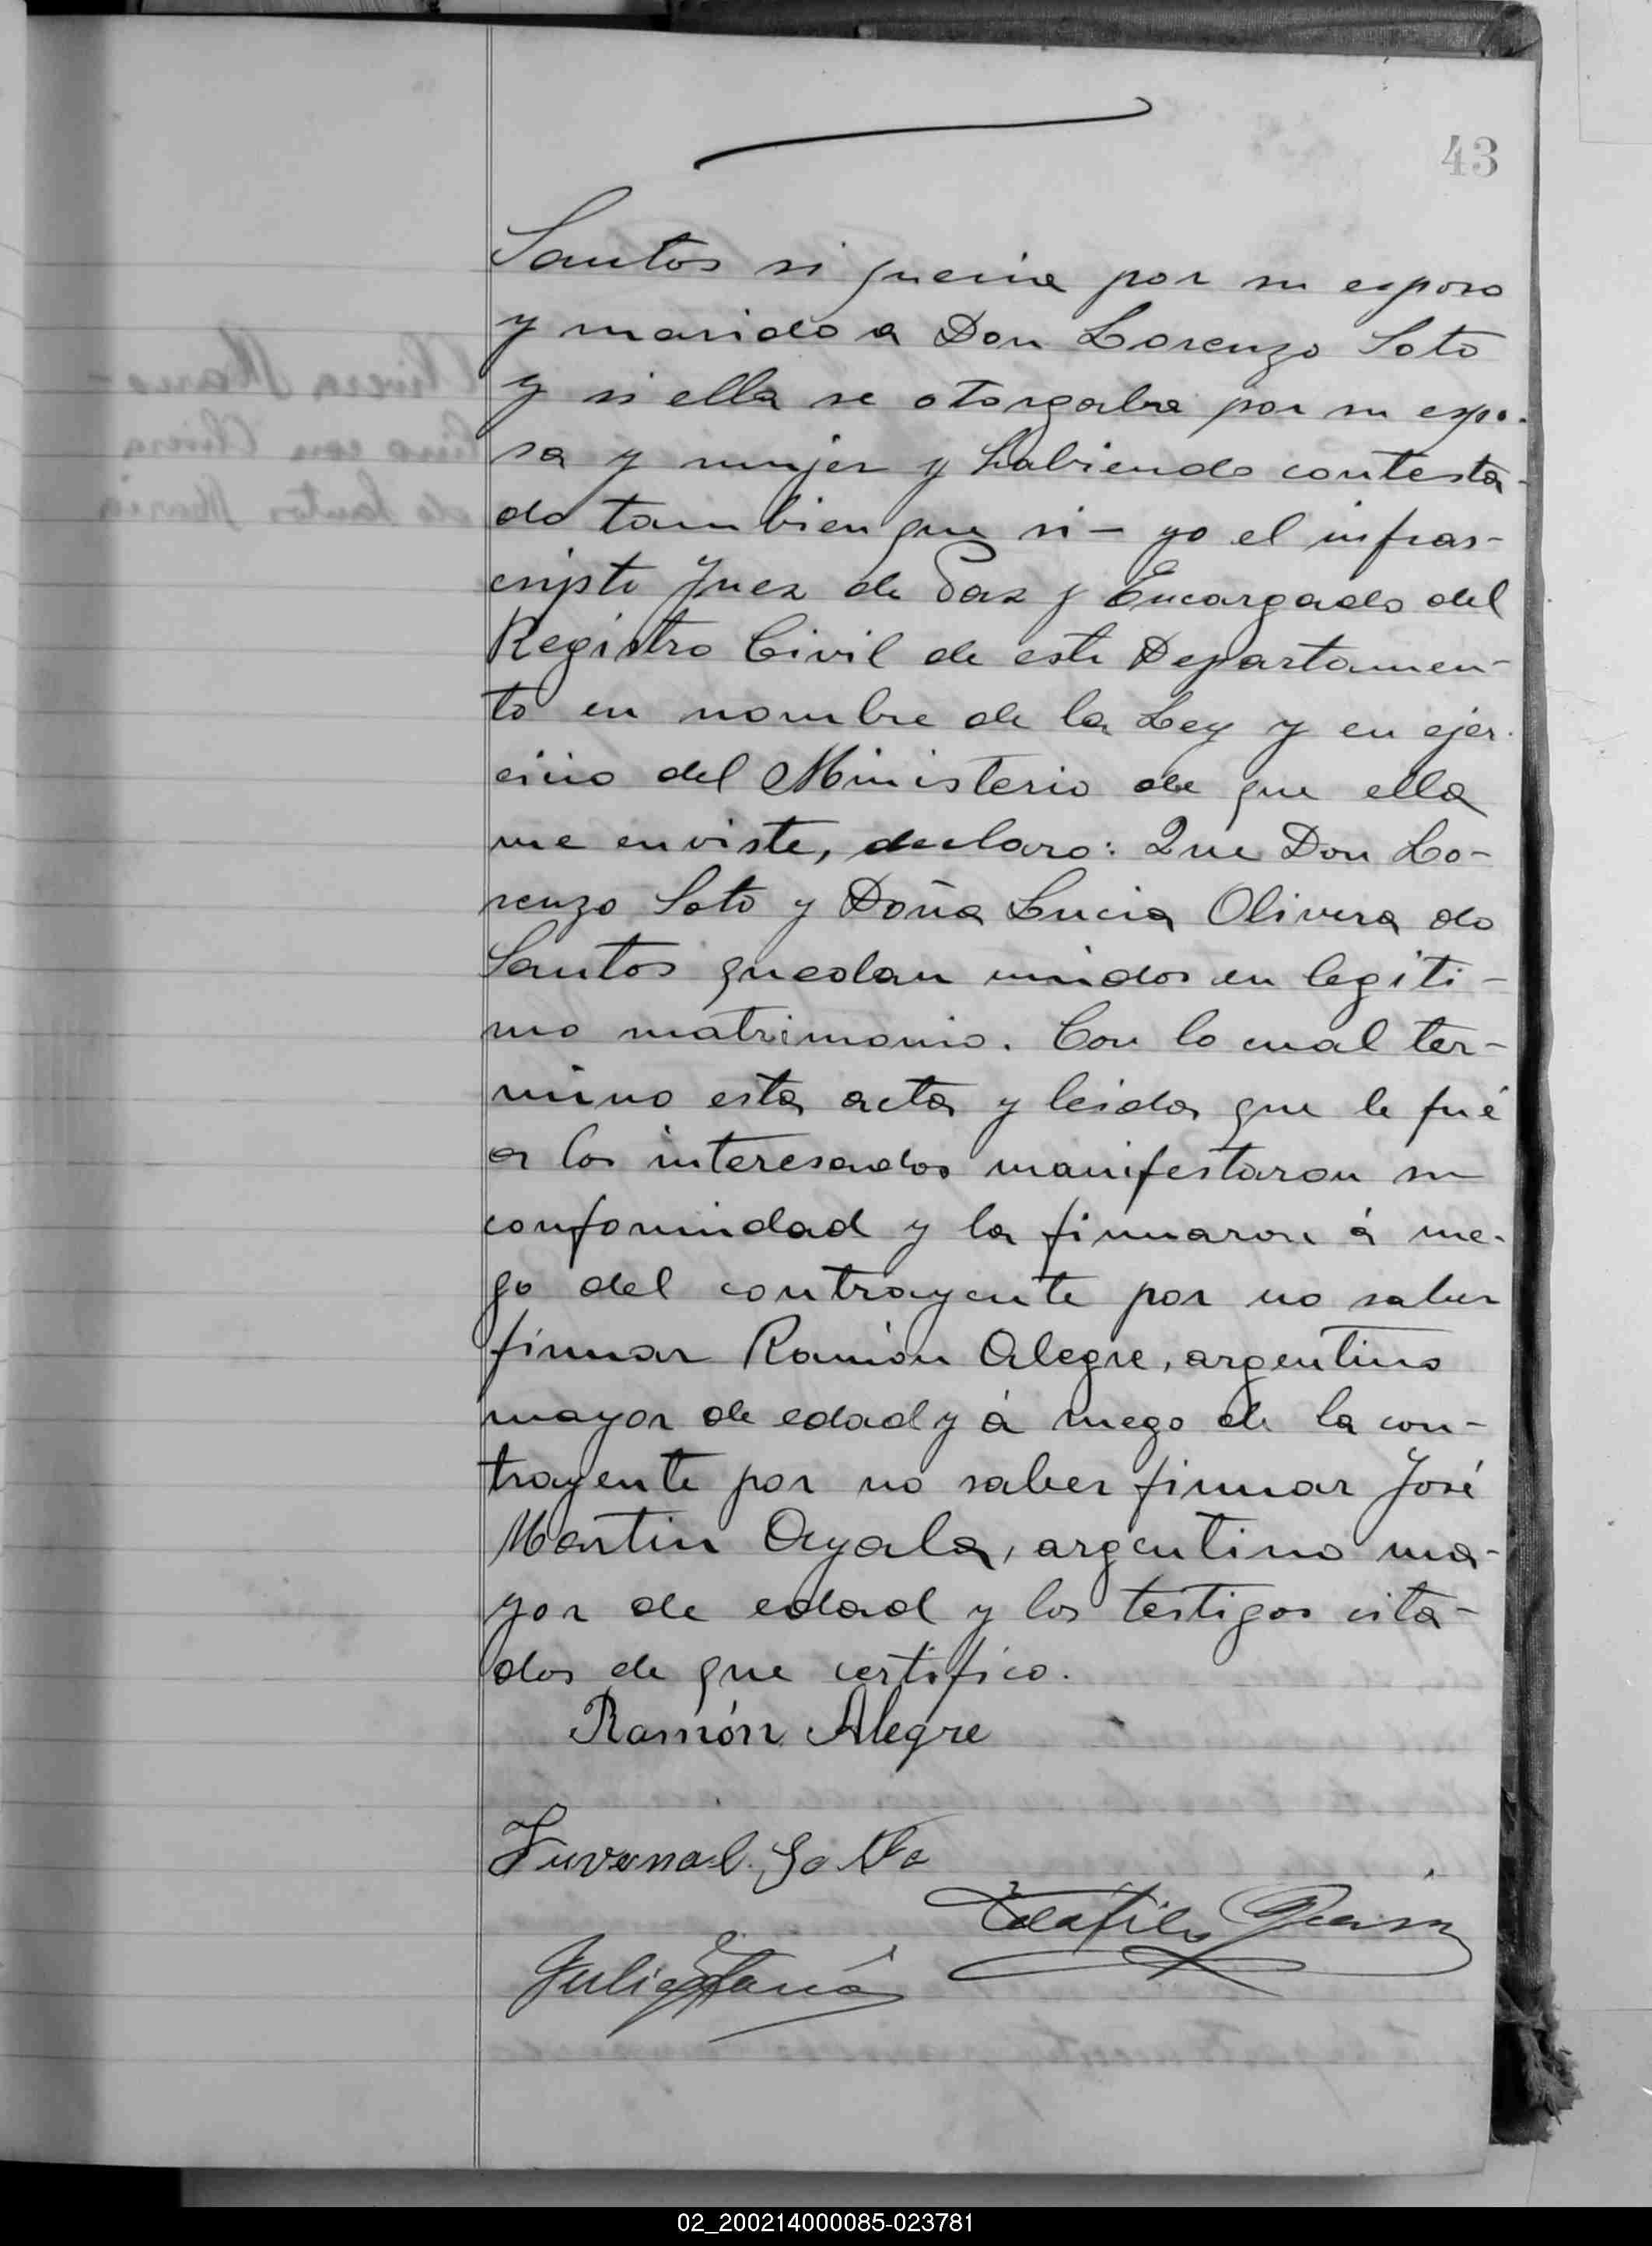 43
Santos si queria por su esposo
y marido a Don Lorenzo Soto
y si ella se otorgaba por su espo-
sa y mujer y habiendo contesta-
do tambien que si - yo el infras-
cripto Juez de Paz y Encargado del
Registro Civil de este Departamen-
to en nombre de la Ley y en ejer-
cicio del Ministerio de que ella
me enviste, declaro: Que Don Lo-
renzo Soto y Doña Lucia Olivera do
Santos quedan unidos en legiti-
mo matrimonio. Con lo cual ter-
mino esta acta y leida que le fué
a los interesados manifestaron su
conformidad y la firmaron á rue-
go del contrayente por no saber
firmar Ramón Alegre, argentino
mayor de edad y á ruego de la con-
trayente por no saber firmar José
Martin Ayala, argentino ma-
yor de edad y los testigos cita-
dos de que certifico.
Ramón Alegre
Juvenal
Julio
02_200214000085-023781